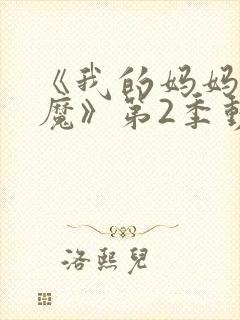 《我的妈妈
魔》第2季
洛熙兒